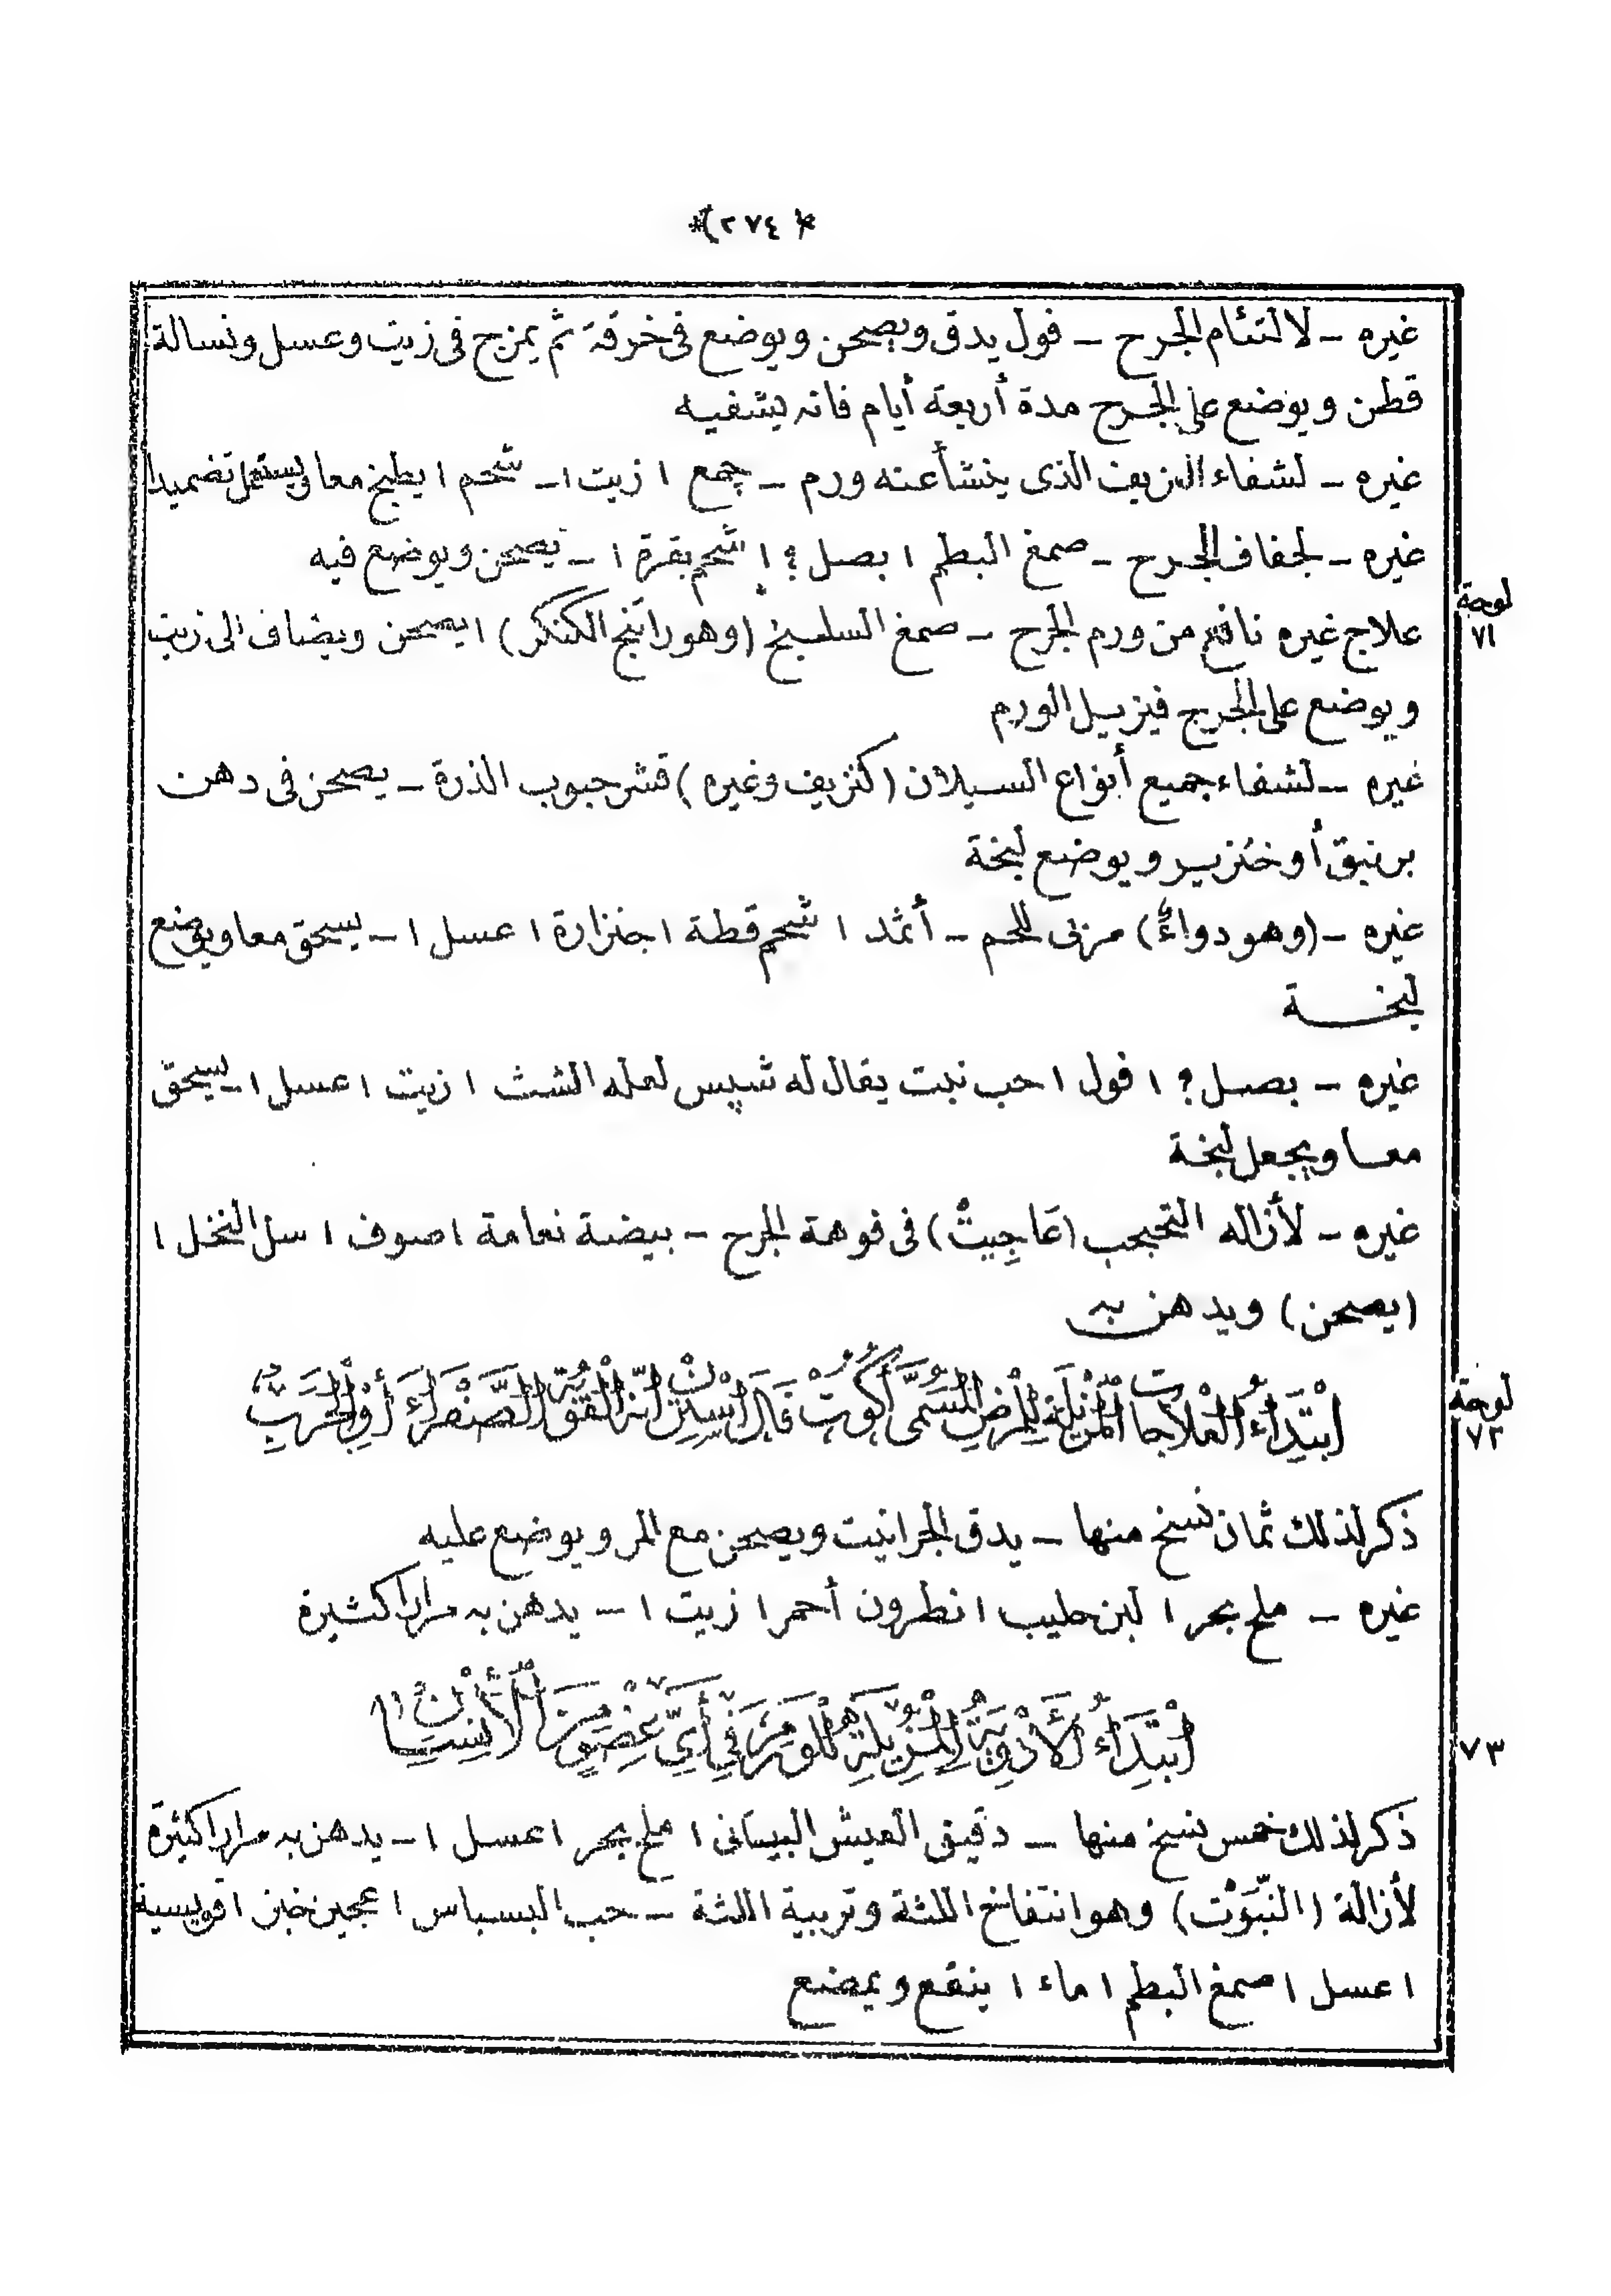 *(٢٧٤)*
غيره – لالتئام الجرح – فول يدق ويصحن ويوضع فى خرقة ثم يمزج فى زيت وعسل ونسالة
قطن ويوضع على الجرح مدة أربعة أيام فانه يشفيه
غيره – لشفاء النزيف الذى ينشأ عنه ورم – جمع ١ زيت ١ – شحم ١ يطبخ معا ويستعمل تضميدا
غيره – لجفاف الجرح – صمغ البطم ١ بصل ؟ ١ شحم بقرة ١ – يصحن ويوضع فيه
لوحة ٧١
علاج غيره نافع من ورم الجرح – صمغ السلبخ (وهو راتنج الكنكر) ١ يصحن ويضاف الى زيت
ويوضع على الجرح فيزيل الورم
غيره – لشفاء جميع أنواع السيلان (كنزيف وغيره) قشر حبوب الذرة – يصحن فى دهن
برنيق أو خنزير ويوضع لبخة
غيره – (وهو دواءٌ) مربى للحم – أثمد ١ شحم قطة ١ جنزارة ١ عسل ١ – يسحق معا ويوضع
لبخة
غيره – بصل ؟ ١ فول ١ حب نبت يقال له شپس لعله الشث ١ زيت ١ عسل ١ – يسحق
معا ويجعل لبخة
غيره – لأزاله التحبحب (عَاجِيتْ) فى فوهة الجرح – بيضة نعامة ١ صوف ١ سل النخل ١
(يصحن) ويدهن به
لوحة ٧٢
ابْتِدَاءُ الْعِلَاجَاتِ الْمُزِيلَةِ لِلْمَرَضِ الْمُسَمَّى أَكُوتْ قَالَ اسْتِرْنْ انَّهُ الْقُوبَةُ الصَّفْرَاءُ أَوِ الْجَرَبُ
ذكر لذلك ثمان نسخ منها – يدق الجرانيت ويصحن مع المر ويوضع عليه
غيره – ملح بحر ١ لبن حليب ١ نطرون أحمر ١ زيت ١ – يدهن به مرارا كثيرة
٧٣
ابْتِدَاءُ الْأَدْوِيَةِ الْمُزِيلَةِ لِلْوَرَمِ فِى أَىِّ عُضْوٍ مِنَ الْأَنْسَانِ
ذكر لذلك خمس نسخ منها – دقيق العيش البيتانى ١ ملح بحر ١ عسل ١ – يدهن به مرارا كثيرة
لأزالة (النّبَوْت) وهو انتفاخ اللثة وتربية اللثة – حب البسباس ١ عجين خبز ١ قويسية
١ عسل ١ صمغ البطم ١ ماء ١ ينقع ويمضغ